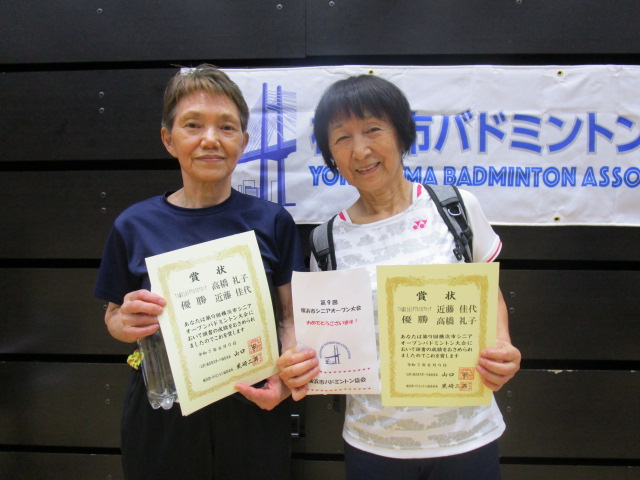 市バドミントン
YOKOHAMA BADMINTON ASSO
賞状
高橋 礼子
優勝 近藤 佳代
あなたは第9回横浜市シニア
オープンバドミントン大会に
おいて頭書の成績をおさめられ
ましたのでこれを賞します
山口
尾崎
第9回
横浜市シニアオープン大会
おめでとうございます!
横浜市バドミントン協会
賞状
近藤 佳代
優勝 高橋 礼子
あなたは第9回横浜市シニア
オープンバドミントン大会に
おいて頭書の成績をおさめられ
ましたのでこれを賞します
山口
YONEX